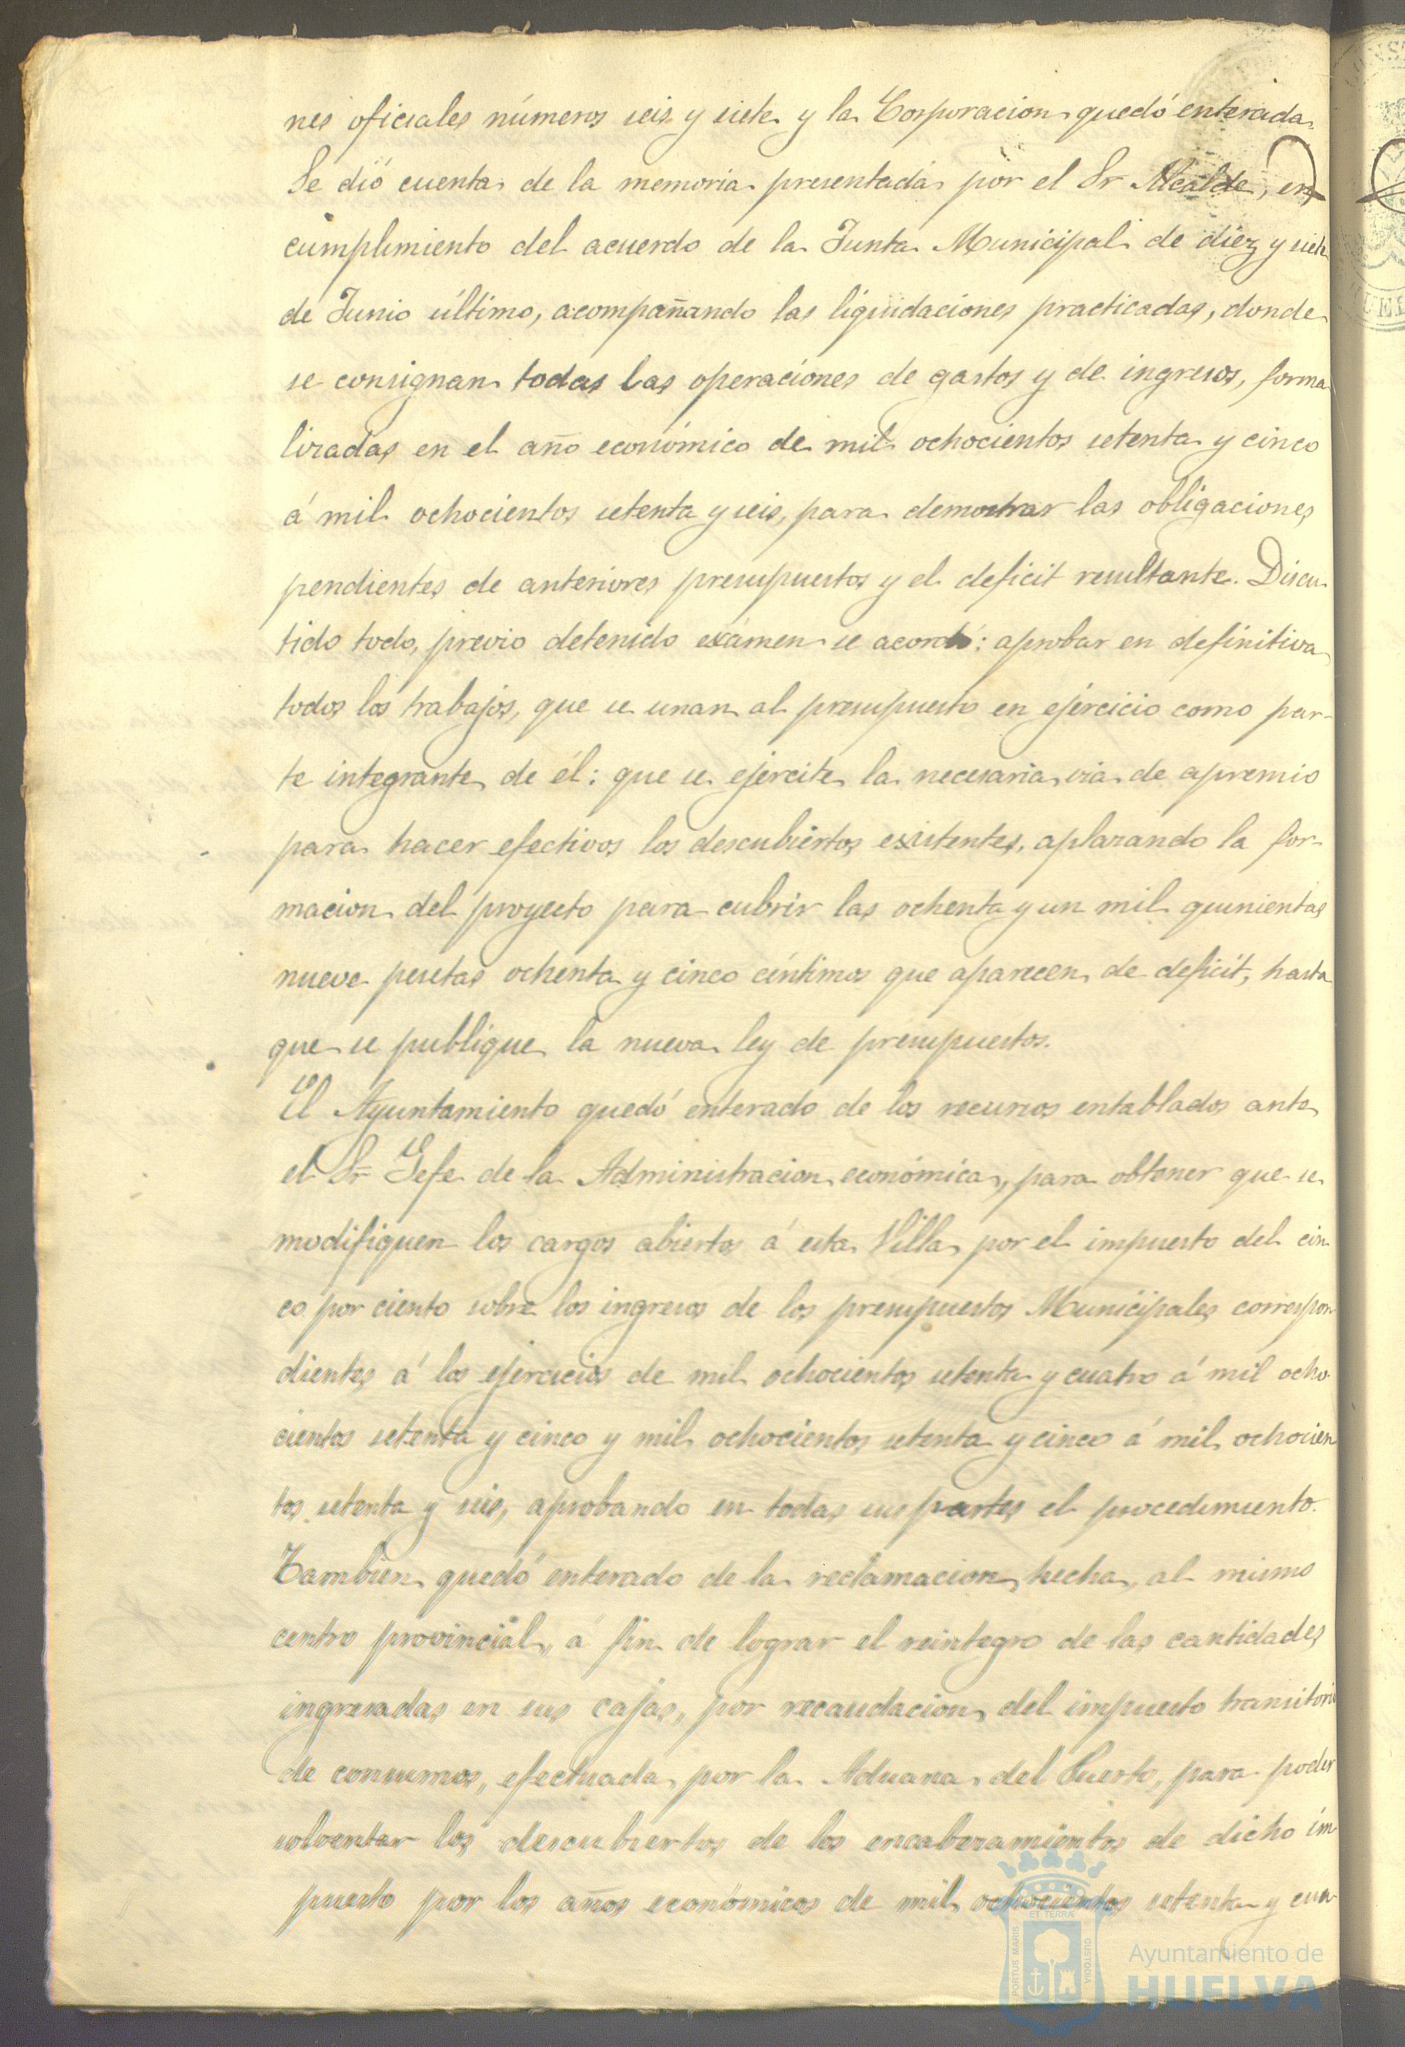 nes oficiales números seis y siete y la Corporacion quedó enterada.
Se dió cuenta de la memoria presentada por el Sr Alcalde, en
cumplimiento del acuerdo de la Junta Municipal de diez y siete
de Junio último, acompañando las liquidaciones practicadas, donde
se consignan todas las operaciones de gastos y de ingresos, forma
lizadas en el año económico de mil ochocientos setenta y cinco
á mil ochocientos setenta y seis, para demostrar las obligaciones
pendientes de anteriores presupuestos y el deficit resultante. Discu-
tido todo, previo detenido exámen se acordó: aprobar en definitiva
todos los trabajos, que se unan al presupuesto en ejercicio como par-
te integrante de él: que se ejercite la necesaria via de apremio
para hacer efectivos los descubiertos existentes, aplazando la for-
macion del proyecto para cubrir las ochenta y un mil quinientas
nueve pesetas ochenta y cinco céntimos que aparecen de deficit, hasta
que se publique la nueva ley de presupuestos.
El Ayuntamiento quedó enterado de los recursos entablados ante
el Sr Gefe de la Administracion económica, para obtener que se
modifiquen los cargos abiertos á esta Villa por el impuesto del cin
co por ciento sobre los ingresos de los presupuestos Municipales correspon
dientes á los ejercicios de mil ochocientos setenta y cuatro á mil ocho-
cientos setenta y cinco y mil ochocientos setenta y cinco á mil ochocien
tos setenta y seis, aprobando en todas sus partes el procedimiento.
Tambien quedó enterado de la reclamacion hecha, al mismo
centro provincial, á fin de lograr el reintegro de las cantidades
ingresadas en sus cajas, por recaudacion del impuesto transitorio
de consumos, efectuada por la Aduana del Puerto, para poder
solventar los descubiertos de los encabezamientos de dicho im
puesto por los años económicos de mil ochocientos setenta y cua
PORTUS MARIS ET TERRA CUSTODIA
Ayuntamiento de
HUELVA